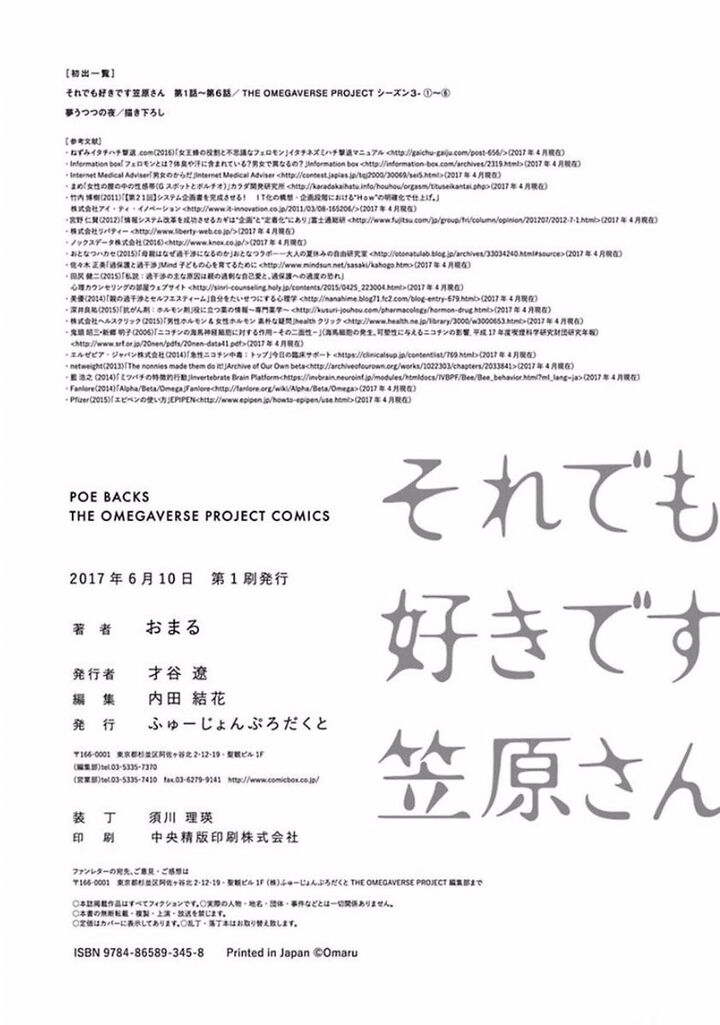 [初出一覧]
それでも好きです笠原さん　第1話～第6話／THE OMEGAVERSE PROJECT シーズン3-①～⑥
夢うつつの夜／描き下ろし
[参考文献]
・ねずみイタチハチ撃退 .com(2016)「女王蜂の役割と不思議なフェロモン」イタチネズミハチ撃退マニュアル <http://gaichu-gaiju.com/post-656/>(2017 年 4 月現在)
・Information box「フェロモンとは？体臭や汗に含まれている？男女で異なるの？」Information box <http://information-box.com/archives/2319.html>(2017 年 4 月現在)
・Internet Medical Adviser「男女のからだ」Internet Medical Adviser <http://contest.japias.jp/tqj2000/30069/sei5.html>(2017 年 4 月現在)
・まめ「女性の膣の中の性感帯(G スポットとポルチオ)」カラダ開発研究所 <http://karadakaihatu.info/houhou/orgasm/tituseikantai.php>(2017 年 4 月現在)
・竹内 博樹(2011)「【第21回】システム企画書を完成させる！　IT化の構想・企画段階における"How"の明確化で仕上げ。」
株式会社アイ・ティ・イノベーション <http://www.it-innovation.co.jp/2011/03/08-165206/>(2017 年 4 月現在)
・宮野 仁賢(2012)「情報システム改革を成功させるカギは"企画"と"定着化"にあり」富士通総研 <http://www.fujitsu.com/jp/group/fri/column/opinion/201207/2012-7-1.html>(2017 年 4 月現在)
・株式会社リバティー <http://www.liberty-web.co.jp/>(2017 年 4 月現在)
・ノックスデータ株式会社(2016)<http://www.knox.co.jp/>(2017 年 4 月現在)
・おとなつハカセ(2015)「母親はなぜ過干渉になるのか」おとなつラボ――大人の夏休みの自由研究室 <http://otonatulab.blog.jp/archives/33034240.html#source>(2017 年 4 月現在)
・佐々木 正美「過保護と過干渉」Mind 子どもの心を育てるために <http://www.mindsun.net/sasaki/kahogo.htm>(2017 年 4 月現在)
・田尻 健二(2015)「私説：過干渉の主な原因は親の過剰な自己愛と、過保護への過度の恐れ」
心理カウンセリングの部屋ウェブサイト <http://sinri-counseling.holy.jp/contents/2015/0425_223004.html>(2017 年 4 月現在)
・美優(2014)「親の過干渉とセルフエスティーム」自分をたいせつにする心理学 <http://nanahime.blog71.fc2.com/blog-entry-679.html>(2017 年 4 月現在)
・深井良祐(2015)「抗がん剤：ホルモン剤」役に立つ薬の情報～専門薬学～ <http://kusuri-jouhou.com/pharmacology/hormon-drug.html>(2017 年 4 月現在)
・株式会社ヘルスクリック(2015)「男性ホルモン & 女性ホルモン 素朴な疑問」health クリック <http://www.health.ne.jp/library/3000/w3000653.html>(2017 年 4 月現在)
・鬼頭 昭三・新郷 明子(2006)「ニコチンの海馬神経細胞に対する作用－その二面性－」(海馬細胞の発生、可塑性に与えるニコチンの影響, 平成 17 年度喫煙科学研究財団研究年報)
<http://www.srf.or.jp/20nen/pdfs/20nen-data41.pdf>(2017 年 4 月現在)
・エルゼビア・ジャパン株式会社(2014)「急性ニコチン中毒：トップ」今日の臨床サポート <https://clinicalsup.jp/contentlist/769.html>(2017 年 4 月現在)
・netweight(2013)「The nonnies made them do it!」Archive of Our Own beta<http://archiveofourown.org/works/1022303/chapters/2033841>(2017 年 4 月現在)
・藍 浩之(2014)「ミツバチの特徴的行動」Invertebrate Brain Platform<https://invbrain.neuroinf.jp/modules/htmldocs/IVBPF/Bee/Bee_behavior.html?ml_lang=ja>(2017 年 4 月現在)
・Fanlore(2014)「Alpha/Beta/Omega」Fanlore<http://fanlore.org/wiki/Alpha/Beta/Omega>(2017 年 4 月現在)
・Pfizer(2015)「エピペンの使い方」EPIPEN<http://www.epipen.jp/howto-epipen/use.html>(2017 年 4 月現在)
POE BACKS
THE OMEGAVERSE PROJECT COMICS
それでも
好きです
笠原さん
2017年6月10日　第1刷発行
著 者　おまる
発行者　才谷 遼
編 集　内田 結花
発 行　ふゅーじょんぷろだくと
〒166-0001　東京都杉並区阿佐ヶ谷北 2-12-19・聖観ビル 1F
(編集部)tel.03-5335-7370
(営業部)tel.03-5335-7410　fax.03-6279-9141　http://www.comicbox.co.jp/
装 丁　須川 理瑛
印 刷　中央精版印刷株式会社
ファンレターの宛先、ご意見・ご感想は
〒166-0001　東京都杉並区阿佐ヶ谷北 2-12-19・聖観ビル 1F (株)ふゅーじょんぷろだくと THE OMEGAVERSE PROJECT 編集部まで
○本誌掲載作品はすべてフィクションです。○実際の人物・地名・団体・事件などとは一切関係ありません。
○本書の無断転載・複製・上演・放送を禁じます。
○定価はカバーに表示してあります。○乱丁・落丁本はお取り替え致します。
ISBN 9784-86589-345-8　Printed in Japan ©Omaru